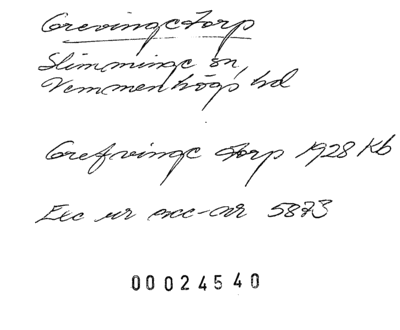 Grevingetorp
Slimminge sn,
Vemmenhögs hd
Grefvinge torp 1928 Kb
Exc ur acc-nr 5873
00024540